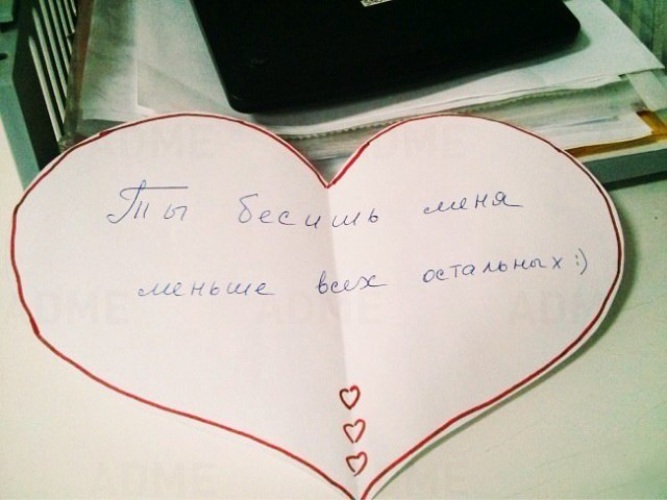 Ты бесишь меня
меньше всех остальных :)
ADME